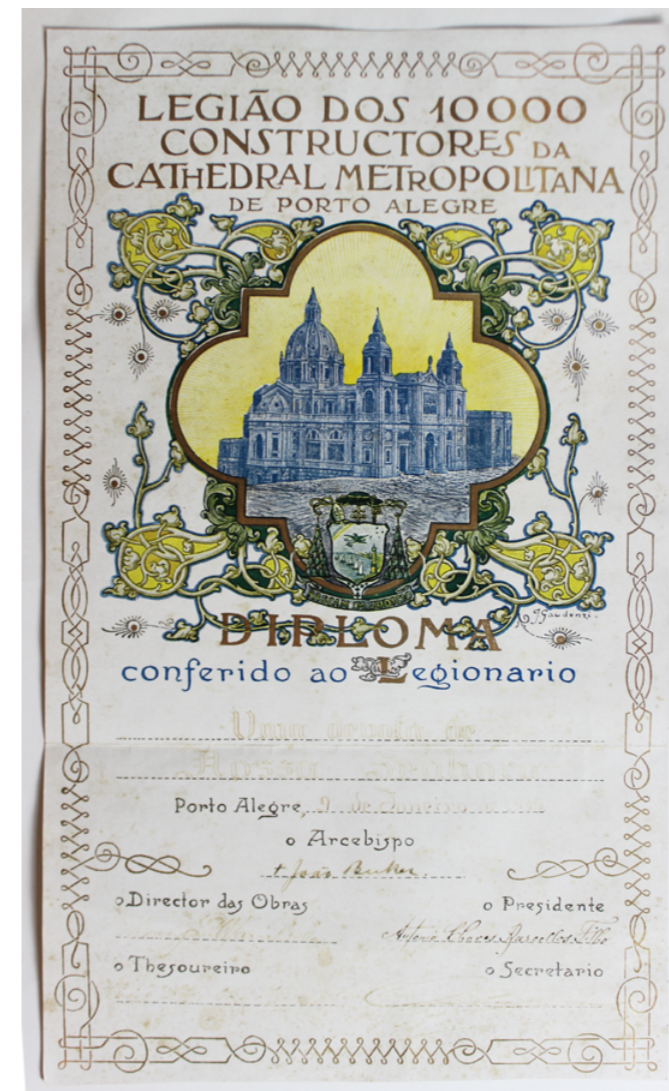 LEGIÃO DOS 10000
CONSTRUCTORES DA
CATHEDRAL METROPOLITANA
DE PORTO ALEGRE
DIPLOMA
conferido ao Legionario
Uma devota de
Porto Alegre, de Janeiro de
o Arcebispo
† João Becker
o Director das Obras
o Presidente
Antonio Chaves Barcellos Filho
o Thesoureiro
o Secretario